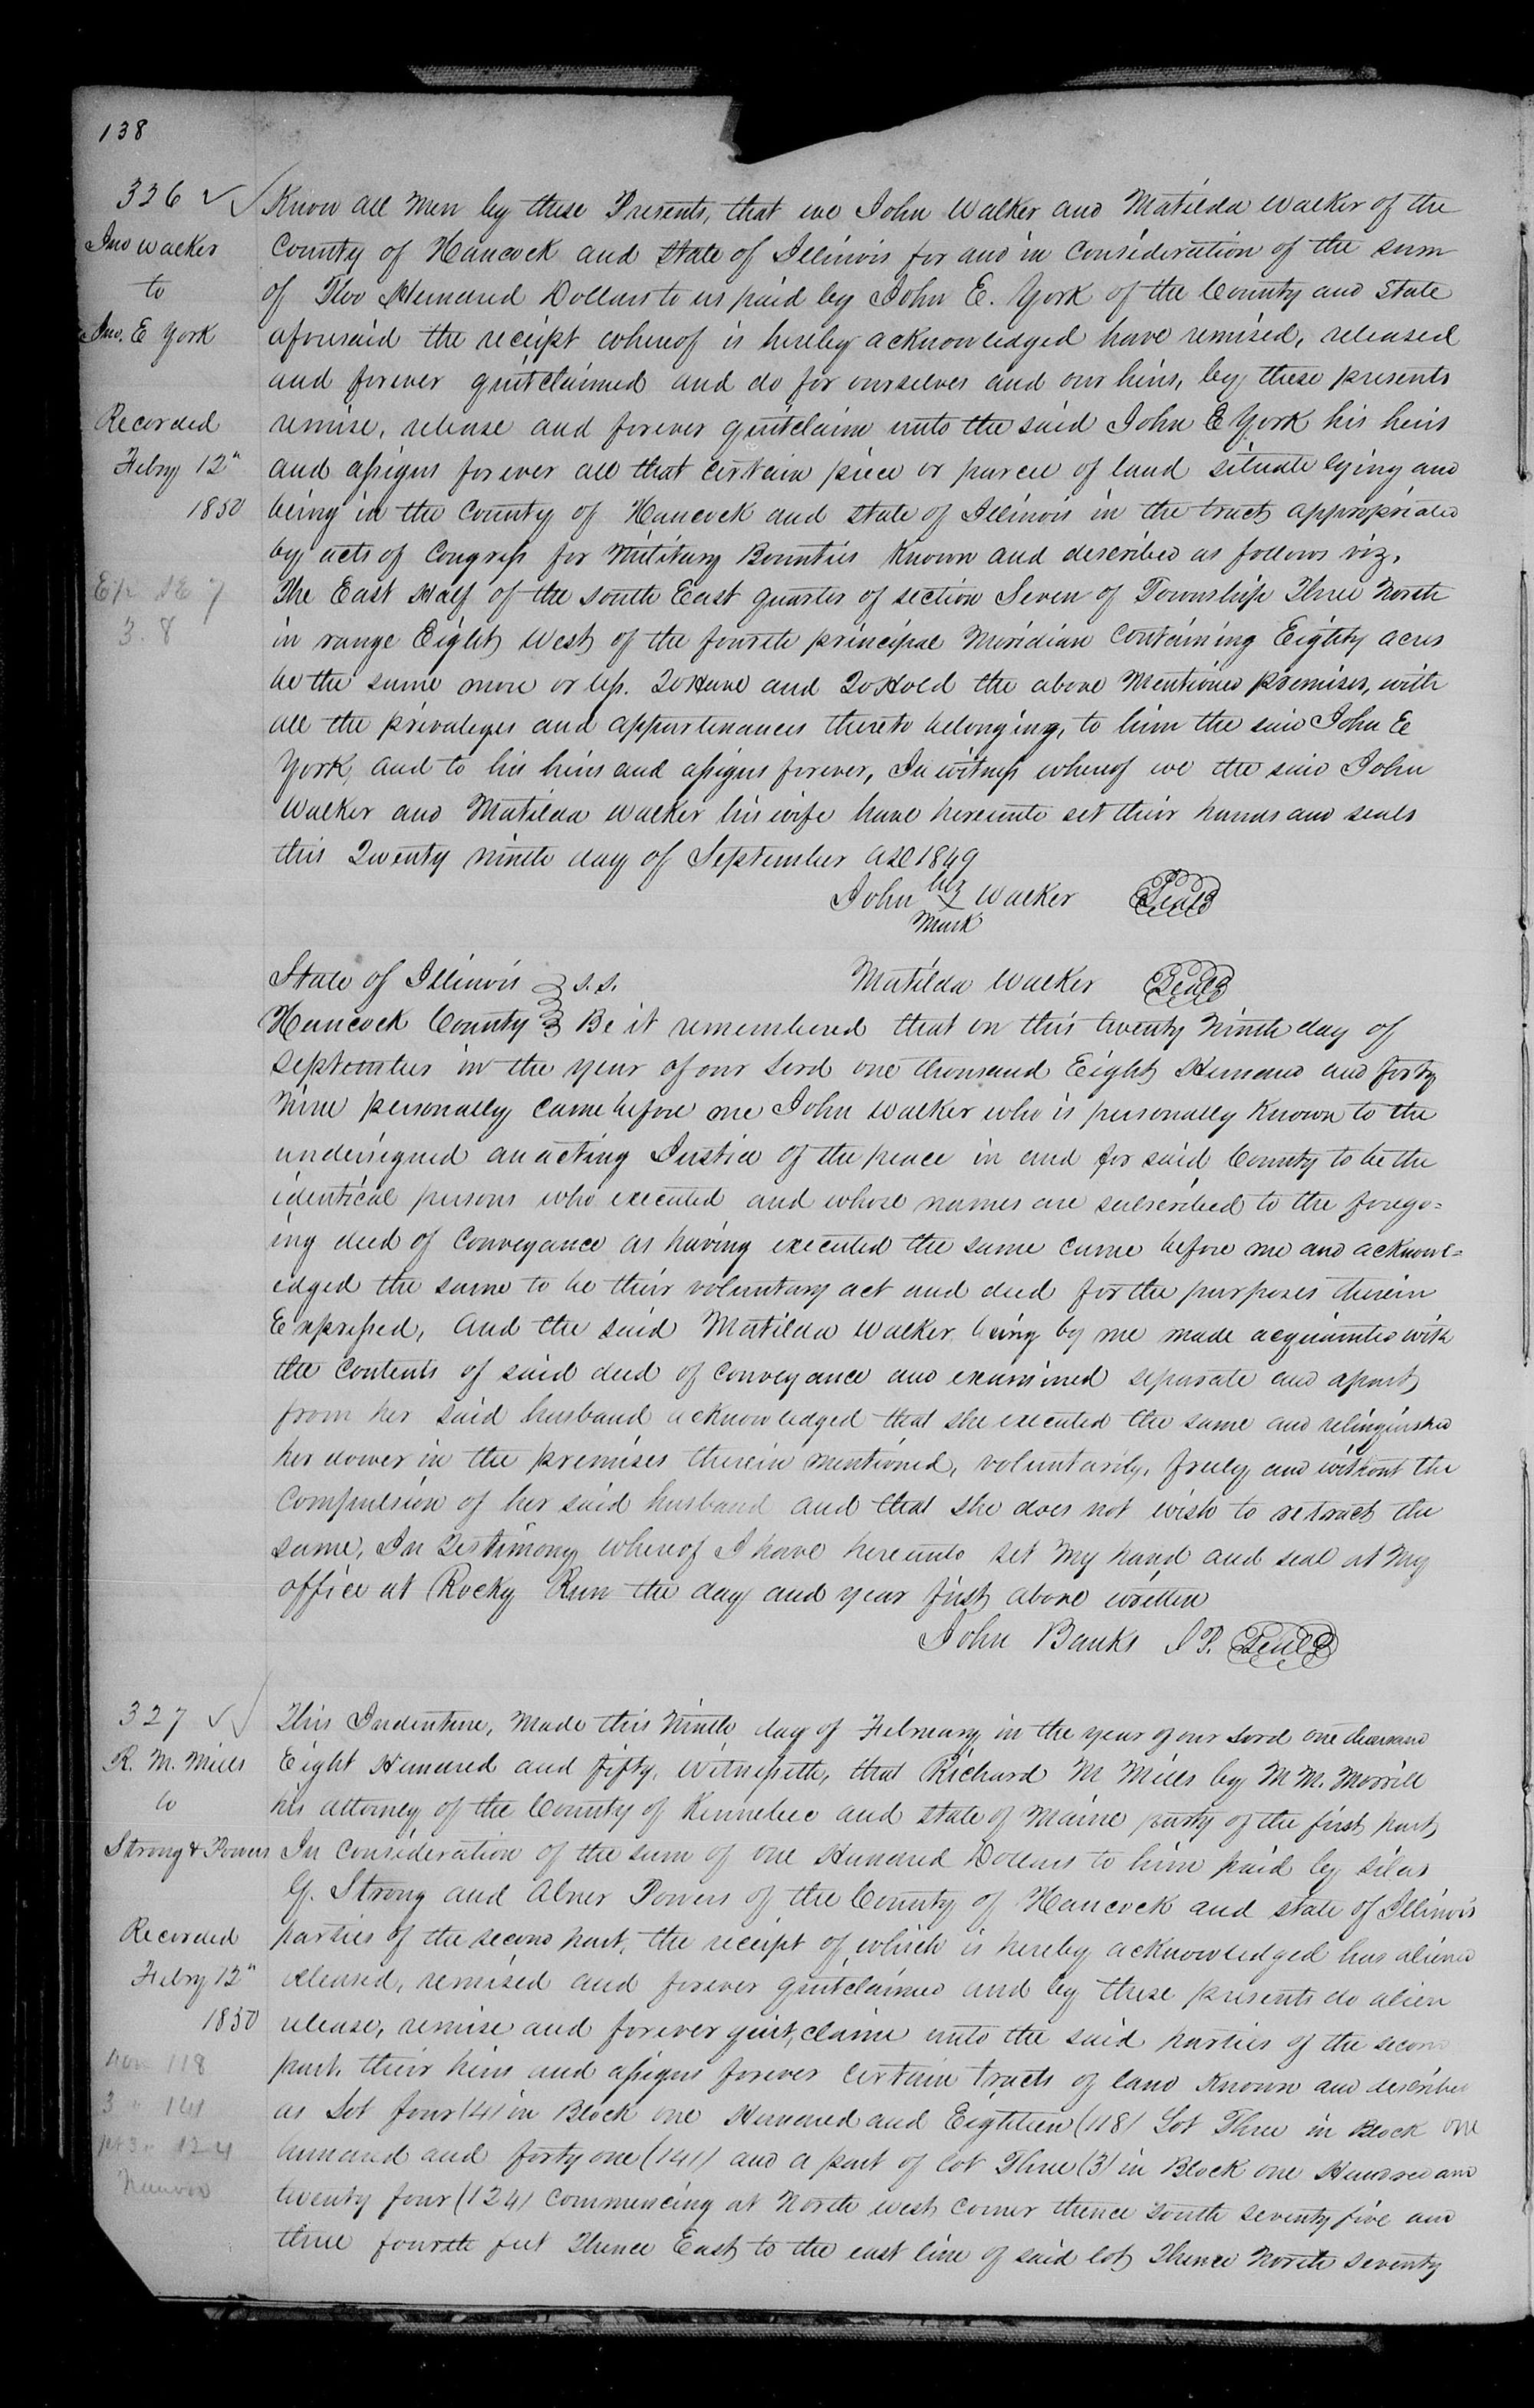 138
326 ✓✓
Jno Walker
to
Jno. E York
Recorded
Febry 12"
1850
E 1/2 SE 7
3. 8
Know all Men by these Presents, that we John Walker and Matilda Walker of the
County of Hancock and State of Illinois for and in Consideration of the sum
of Two Hundred Dollars to us paid by John E. York of the County and State
aforesaid the receipt whereof is hereby acknowledged have remised, released
and forever quitclaimed and do for ourselves and our heirs, by these presents
remise, release and forever quitclaim unto the said John E York his heirs
and assigns forever all that certain piece or parcel of land situate lying and
being in the County of Hancock and State of Illinois in the tract appropriated
by acts of Congress for Military Bounties Known and described as follows viz,
The East Half of the South East quarter of section Seven of Township Three North
in range Eight West of the fourth principal Meridian Containing Eighty acres
be the same more or less. To Have and To Hold the above Mentioned premises, with
all the privaleges and appurtenances thereto belonging, to him the said John E
York, and to his heirs and assigns forever, In witness whereof we the said John
Walker and Matilda Walker his wife have hereunto set their hands and seals
this Twenty ninth day of September AD 1849
John his X mark Walker Seal
State of Illinois } S.S. Matilda Walker Seal
Hancock County } Be it remembered that on this twenty Ninth day of
September in the year of our Lord one thousand Eight Hundred and forty
Nine personally Came before me John Walker who is personally Known to the
undersigned an acting Justice of the peace in and for said County to be the
identical persons who executed and whose names are subscribed to the forego=
ing deed of Conveyance as having executed the same came before me and acknowl=
edged the same to be their voluntary act and deed for the purposes therein
Expressed, And the said Matilda Walker being by me made acquainted with
the Contents of said deed of Conveyance and examined separate and apart
from her said husband acknowledged that she executed the same and relinquished
her dower in the premises therein mentioned, voluntarily, freely and without the
Compulsion of her said husband and that she does not wish to retract the
same, In Testimony whereof I have hereunto set My hand and seal at My
office at Rocky Run the day and year first above written
John Banks J P. Seal
327 ✓✓
R. M. Mills
to
Strong & Powers
Recorded
Febry 12"
1850
4 on 118
3 " 141
pt 3 " 124
Nauvoo
This Indenture, Made this Ninth day of February in the year of our Lord one thousand
Eight Hundred and fifty, Witnesseth, that Richard M Mills by M M. Morrill
his attorney of the County of Kennebec and State of Maine party of the first part
In Consideration of the sum of one Hundred Dollars to him paid by Silas
G. Strong and Abner Powers of the County of Hancock and State of Illinois
parties of the second part, the receipt of which is hereby acknowledged has aliened
released, remised and forever quitclaimed and by these presents do alien
release, remise and forever quit, claim unto the said parties of the second
part, their heirs and assigns forever Certain tracts of land Known and described
as Lot four (4) in Block one Hundred and Eighteen (118) Lot Three in Block one
hundred and forty one (141) and a part of lot Three (3) in Block one Hundred and
twenty four (124) Commencing at North west Corner thence South seventy five and
three fourth feet Thence East to the east line of said lot, Thence North seventy